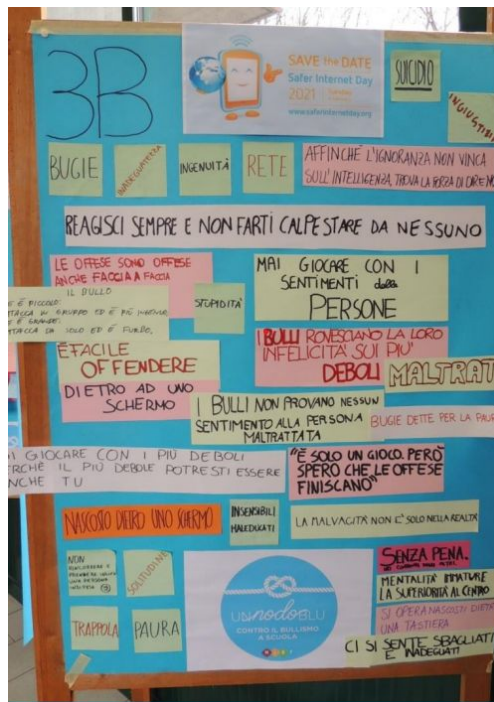 3B
SAVE the DATE
Safer Internet Day
2021
www.saferinternetday.org
SUICIDIO
BUGIE
INADEGUATEZZA
INGENUITÀ
RETE
AFFINCHÈ L'IGNORANZA NON VINCA
SULL'INTELLIGENZA, TROVA LA FORZA DI DIRE NO
REAGISCI SEMPRE E NON FARTI CALPESTARE DA NESSUNO
LE OFFESE SONO OFFESE
ANCHE FACCIA A FACCIA
IL BULLO
È PICCOLO
ATTACCA IN GRUPPO ED È PIÙ
È GRANDE
ATTACCA DA SOLO ED È FURBO.
STUPIDITÀ
MAI GIOCARE CON I
SENTIMENTI delle
PERSONE
È FACILE
OFFENDERE
DIETRO AD UNO
SCHERMO
I BULLI ROVESCIANO LA LORO
INFELICITA' SUI PIU'
DEBOLI
MALTRAT
I BULLI NON PROVANO NESSUN
SENTIMENTO ALLA PERSONA
MALTRATTATA
BUGIE DETTE PER LA PAUR
I GIOCARE CON I PIÙ DEBOLI
RCHÈ IL PIÙ DEBOLE POTRESTI ESSERE
NCHE TU
"È SOLO UN GIOCO. PERÒ
SPERO CHE LE OFFESE
FINISCANO"
NASCOSTO DIETRO UNO SCHERMO
INSENSIBILI
MALEDUCATI
LA MALVAGITÀ NON E' SOLO NELLA REALTÀ
NON
SOLITUDINE
TRAPPOLA
PAURA
UNnodoBLU
CONTRO IL BULLISMO
A SCUOLA
SENZA PENA.
MENTALITÀ IMMATURE
LA SUPERIORITÀ AL CENTRO
SI OPERA NASCOSTI DIETRO
UNA TASTIERA
CI SI SENTE SBAGLIATI
E INADEGUATI